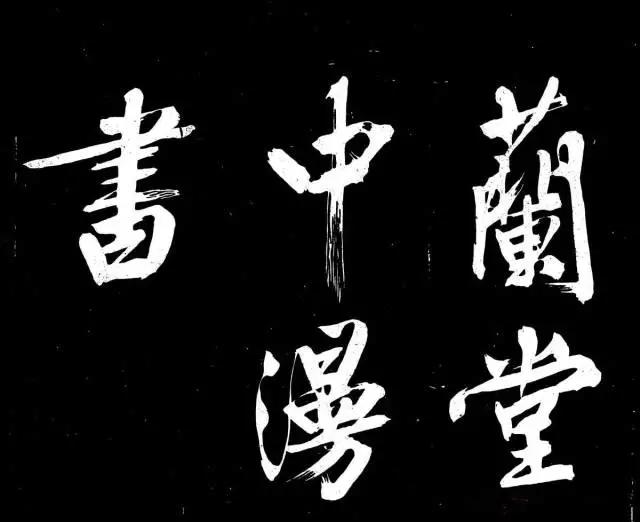 蘭堂
中漫
書